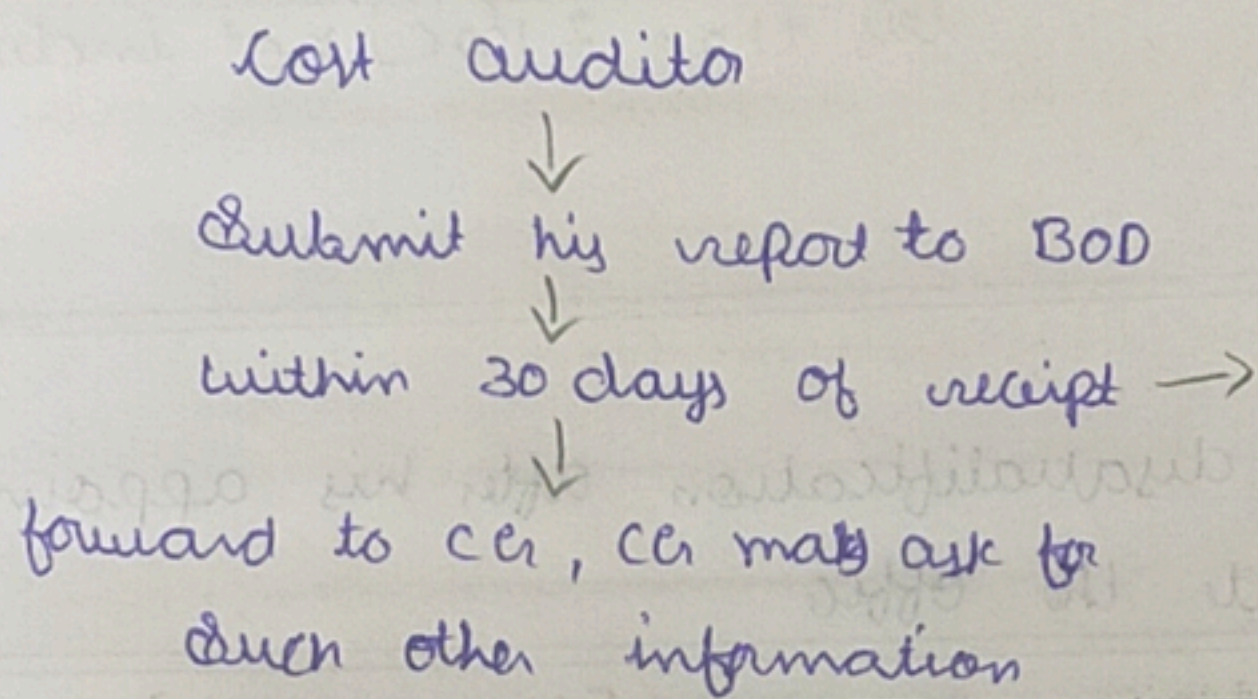 Cost auditor
↓
Submit his report to BOD
↓
within 30 days of receipt →
↓
forward to CG, CG may ask for
Such other information